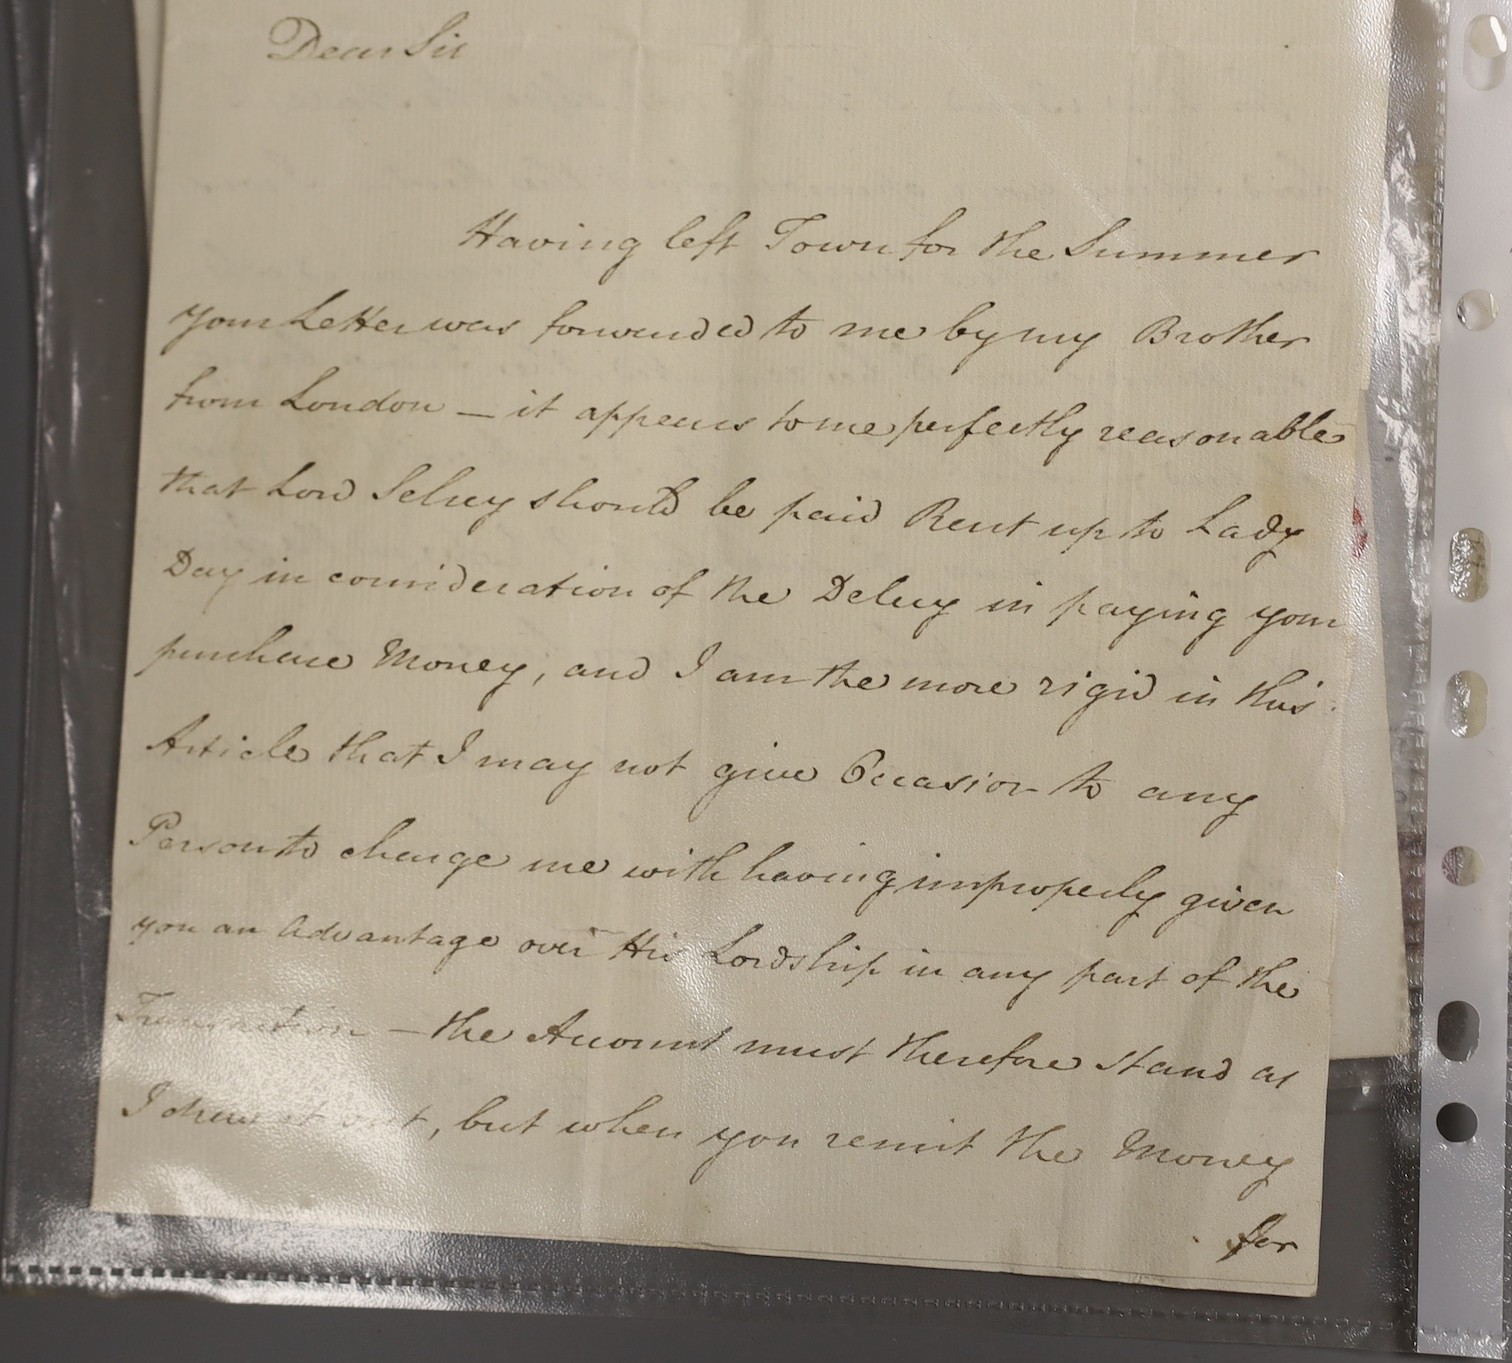 Dear Sir
Having left Town for the Summer
your Letter was forwarded to me by my Brother
from London — it appears to me perfectly reasonable
that Lord Selsey should be paid Rent up to Lady
Day in consideration of the Delay in paying your
purchase Money, and I am the more rigid in this
Article that I may not give Occasion to any
Person to charge me with having improperly given
you an Advantage over His Lordship in any part of the
Transaction — the Account must therefore stand as
I drew it out, but when you remit the Money
for